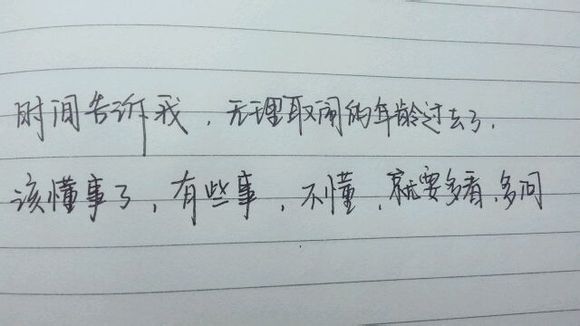 时间告诉我，无理取闹的年龄过去了，
该懂事了，有些事，不懂，就要多看、多问